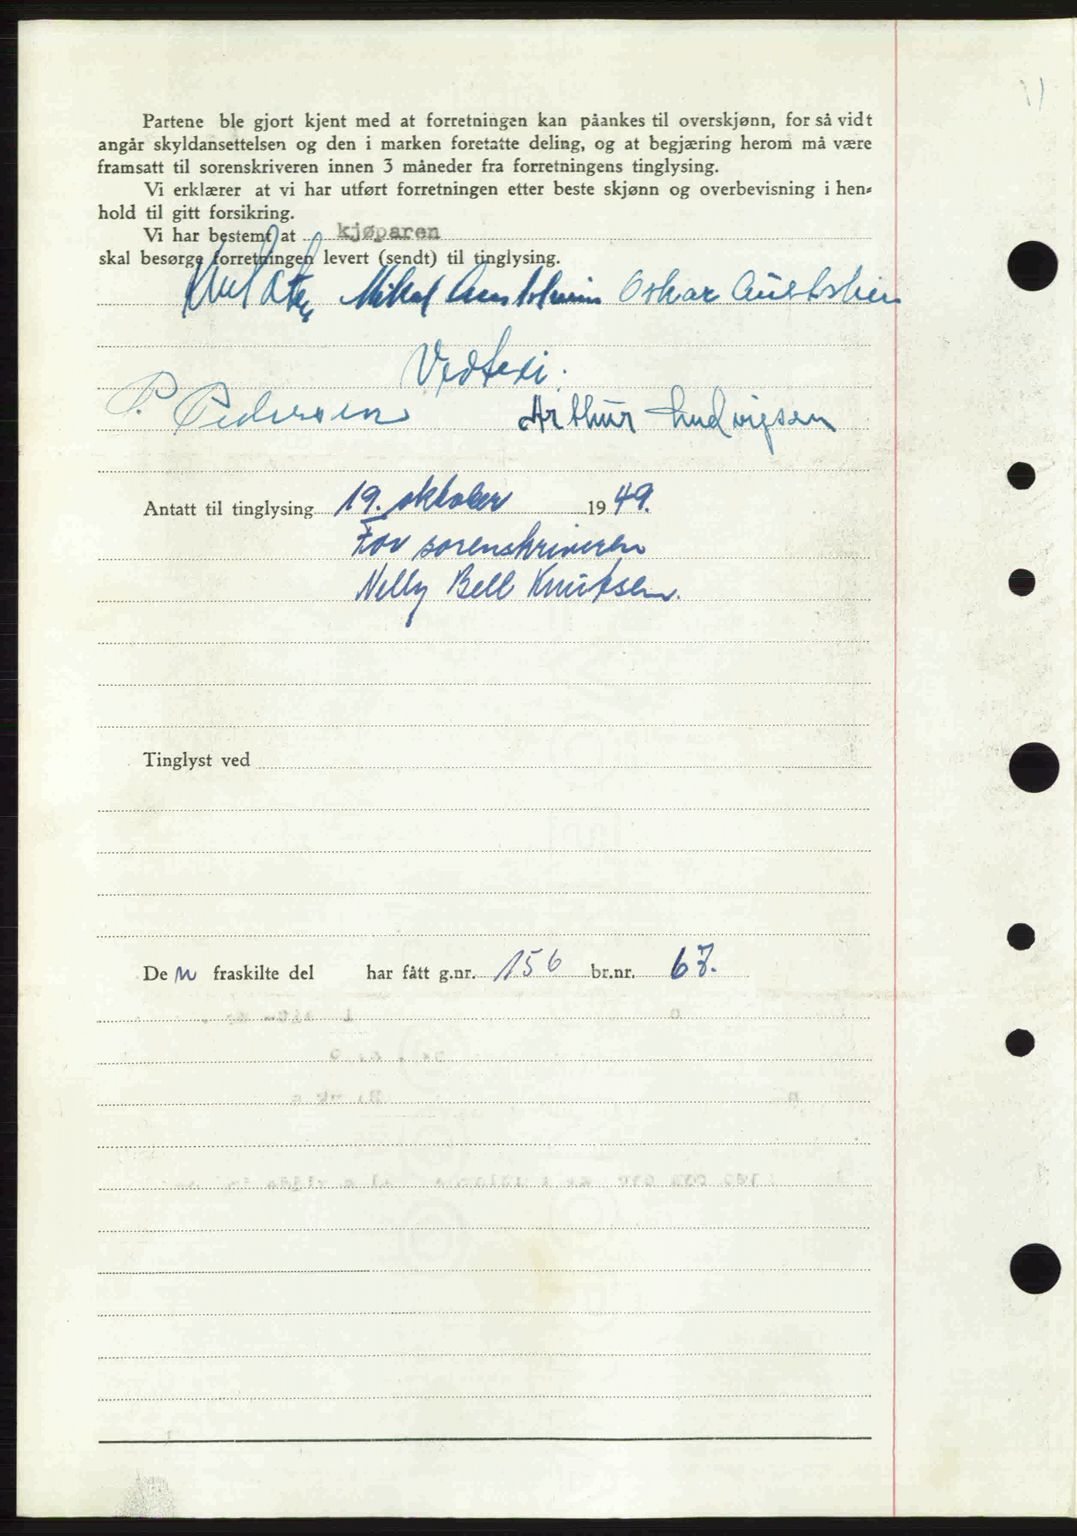 Partene ble gjort kjent med at forretningen kan påankes til overskjønn, for så vidt
angår skyldansettelsen og den i marken foretatte deling, og at begjæring herom må være
framsatt til sorenskriveren innen 3 måneder fra forretningens tinglysing.
Vi erklærer at vi har utført forretningen etter beste skjønn og overbevisning i hen-
hold til gitt forsikring.
Vi har bestemt at kjøparen
skal besørge forretningen levert (sendt) til tinglysing.
Mikal Oskar
P. Pedersen Arthur Ludvigsen
Antatt til tinglysing 19. oktober 1949.
For sorenskriveren
Nelly Bell Knutsen.
Tinglyst ved
Den fraskilte del har fått g.nr. 156 br.nr. 67.